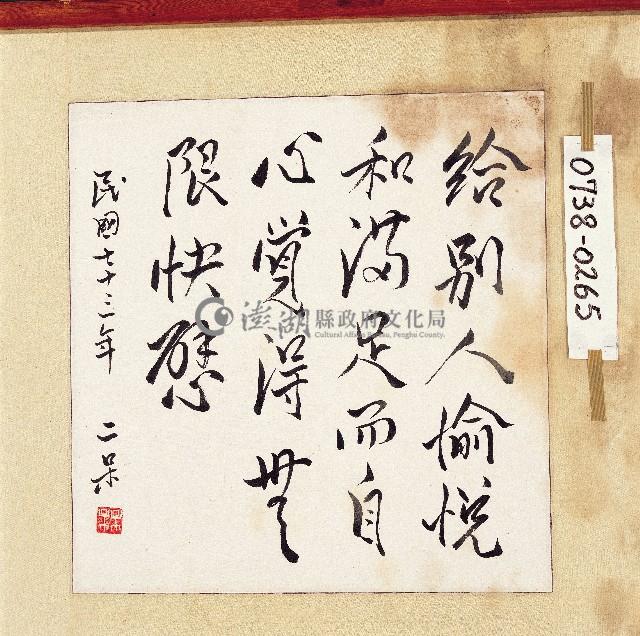 給別人愉悅
和滿足而自
心覺得無
限快慰
民國七十三年 二呆
0738-0265
澎湖縣政府文化局
Cultural Affairs Bureau, Penghu County.